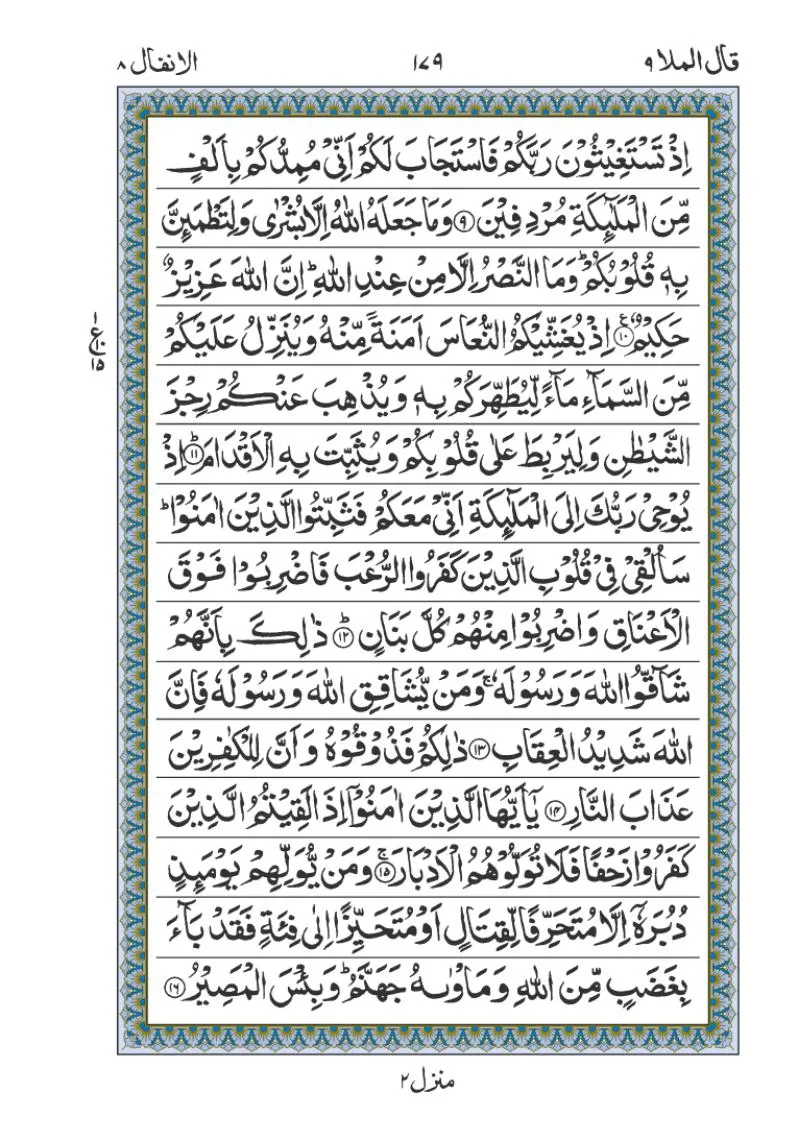 قال الملا ۹
۱۷۹
الانفال ۸
اِذۡ تَسۡتَغِيۡثُوۡنَ رَبَّكُمۡ فَاسۡتَجَابَ لَكُمۡ اَنِّىۡ مُمِدُّكُمۡ بِاَلۡفٍ
مِّنَ الۡمَلٰٓٮِٕكَةِ مُرۡدِفِيۡنَ ۹ وَمَا جَعَلَهُ اللّٰهُ اِلَّا بُشۡرٰى وَلِتَطۡمَٮِٕنَّ
بِهٖ قُلُوۡبُكُمۡ‌ؕ وَمَا النَّصۡرُ اِلَّا مِنۡ عِنۡدِ اللّٰهِ‌ؕ اِنَّ اللّٰهَ عَزِيۡزٌ
حَكِيۡمٌ ۱۰ اِذۡ يُغَشِّيۡكُمُ النُّعَاسَ اَمَنَةً مِّنۡهُ وَيُنَزِّلُ عَلَيۡكُمۡ
مِّنَ السَّمَآءِ مَآءً لِّيُطَهِّرَكُمۡ بِهٖ وَيُذۡهِبَ عَنۡكُمۡ رِجۡزَ
الشَّيۡطٰنِ وَلِيَرۡبِطَ عَلٰى قُلُوۡبِكُمۡ وَيُثَبِّتَ بِهِ الۡاَقۡدَامَؕ ۱۱ اِذۡ
يُوۡحِىۡ رَبُّكَ اِلَى الۡمَلٰٓٮِٕكَةِ اَنِّىۡ مَعَكُمۡ فَثَبِّتُوا الَّذِيۡنَ اٰمَنُوۡا‌ؕ
سَاُلۡقِىۡ فِىۡ قُلُوۡبِ الَّذِيۡنَ كَفَرُوا الرُّعۡبَ فَاضۡرِبُوۡا فَوۡقَ
الۡاَعۡنَاقِ وَاضۡرِبُوۡا مِنۡهُمۡ كُلَّ بَنَانٍؕ ۱۲ ذٰلِكَ بِاَنَّهُمۡ
شَآقُّوا اللّٰهَ وَرَسُوۡلَهٗ‌ۚ وَمَنۡ يُّشَاقِقِ اللّٰهَ وَرَسُوۡلَهٗ فَاِنَّ
اللّٰهَ شَدِيۡدُ الۡعِقَابِ ۱۳ ذٰلِكُمۡ فَذُوۡقُوۡهُ وَاَنَّ لِلۡكٰفِرِيۡنَ
عَذَابَ النَّارِ ۱۴ يٰۤاَيُّهَا الَّذِيۡنَ اٰمَنُوۡۤا اِذَا لَقِيۡتُمُ الَّذِيۡنَ
كَفَرُوۡا زَحۡفًا فَلَا تُوَلُّوۡهُمُ الۡاَدۡبَارَ‌ۚ ۱۵ وَمَنۡ يُّوَلِّهِمۡ يَوۡمَٮِٕذٍ
دُبُرَهٗۤ اِلَّا مُتَحَرِّفًا لِّقِتَالٍ اَوۡ مُتَحَيِّزًا اِلٰى فِئَةٍ فَقَدۡ بَآءَ
بِغَضَبٍ مِّنَ اللّٰهِ وَمَاۡوٰٮهُ جَهَنَّمُ‌ؕ وَبِئۡسَ الۡمَصِيۡرُ ۱۶
۱
ع
۱۵
منزل ۲